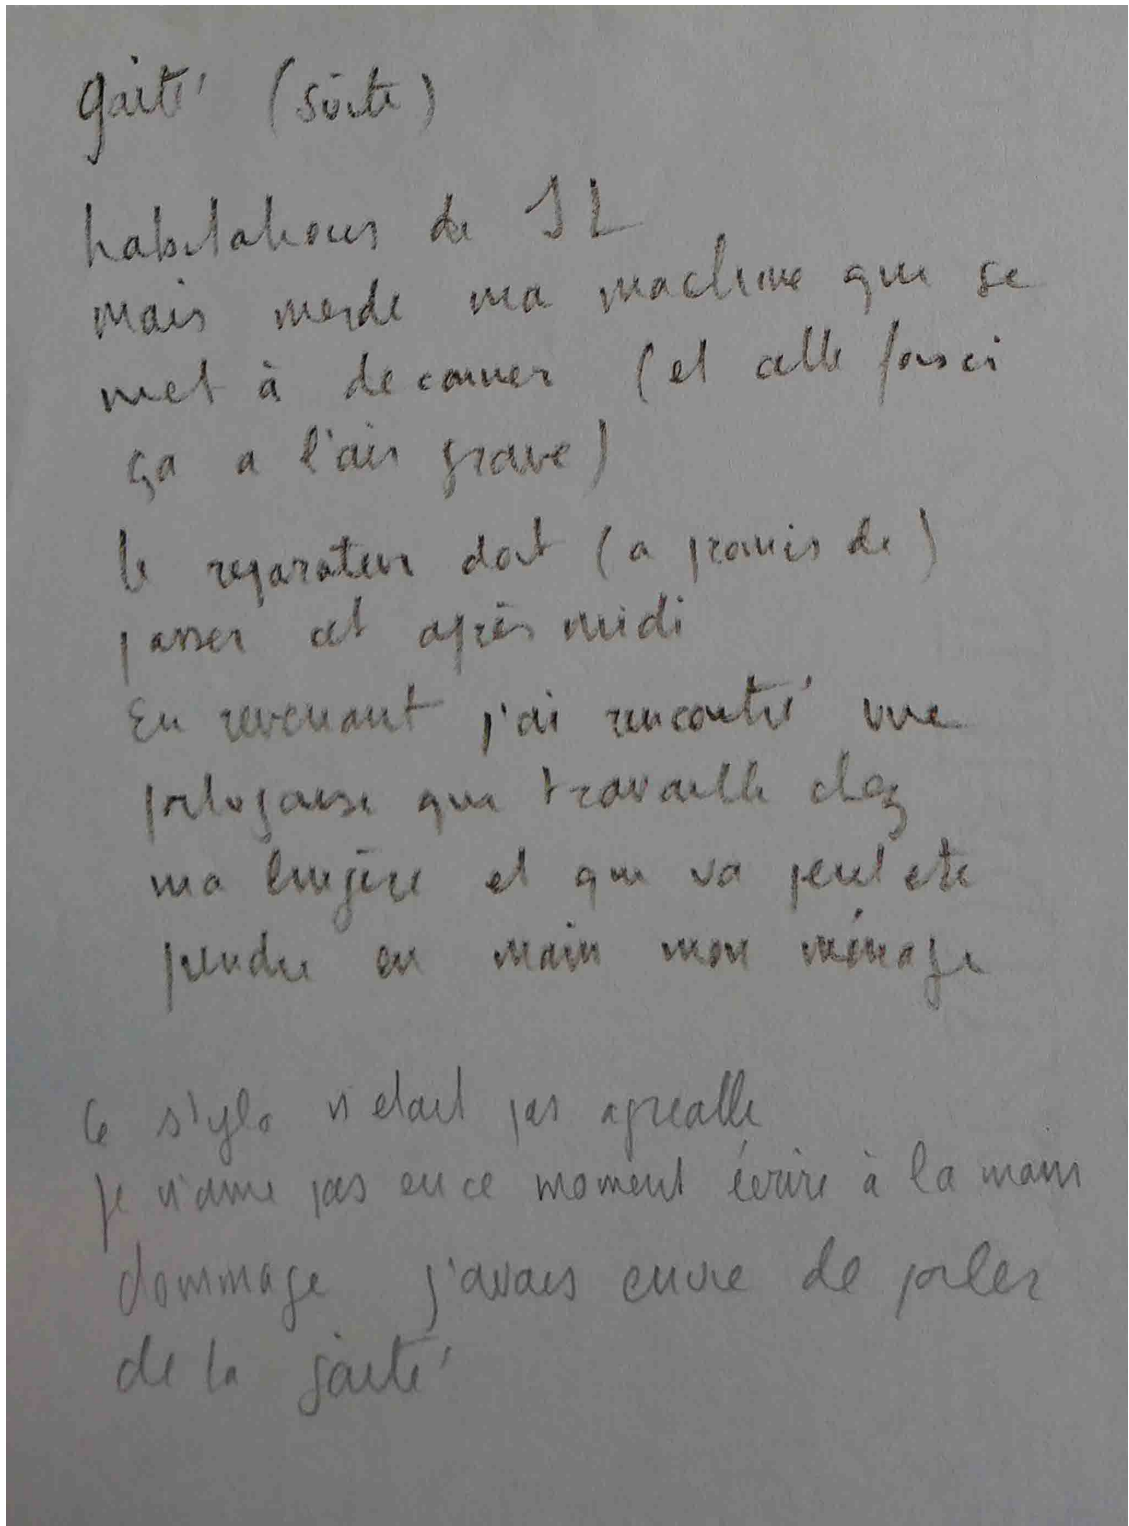 gaité (suite)
habitations de JL
mais merde ma machine qui se
met à deconner (et cette fois ci
ça a l'air grave)
le reparateur doit (a promis de)
passer cet après midi
En revenant j'ai rencontré une
portugaise qui travaille chez
ma lingère et qui va peut etre
prendre en main mon ménage
Ce stylo n'etait pas agreable
je n'aime pas en ce moment écrire à la main
dommage j'avais envie de parler
de la gaité